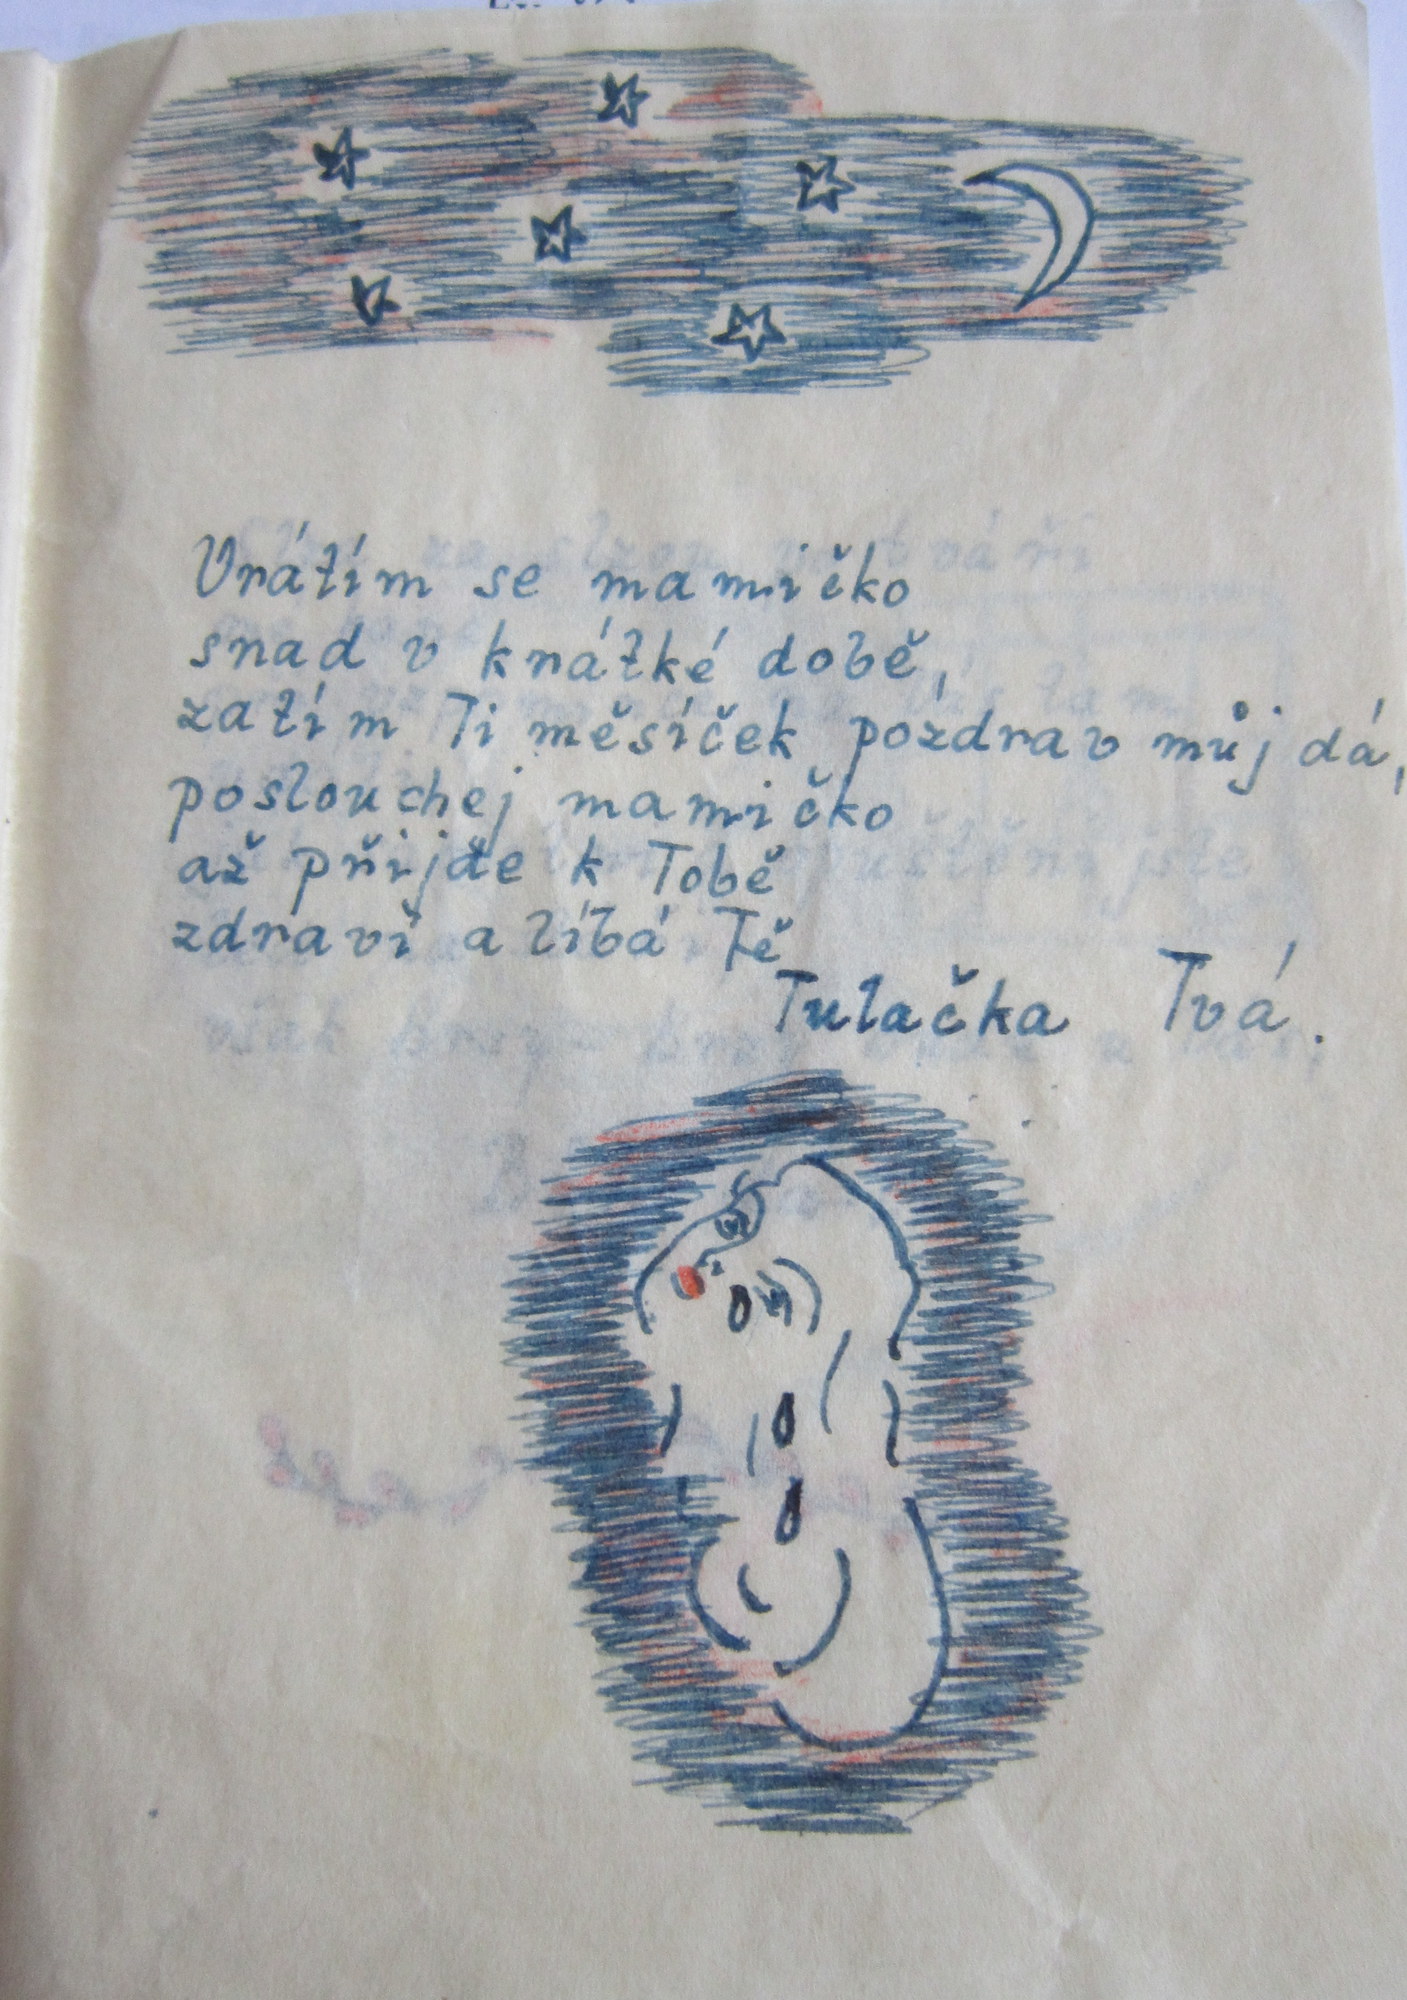 Vrátím se mamičko
snad v krátké době,
zatím Ti měsíček pozdrav můj dá,
poslouchej mamičko
až přijde k Tobě
zdraví a líbá Tě
Tulačka Tvá.